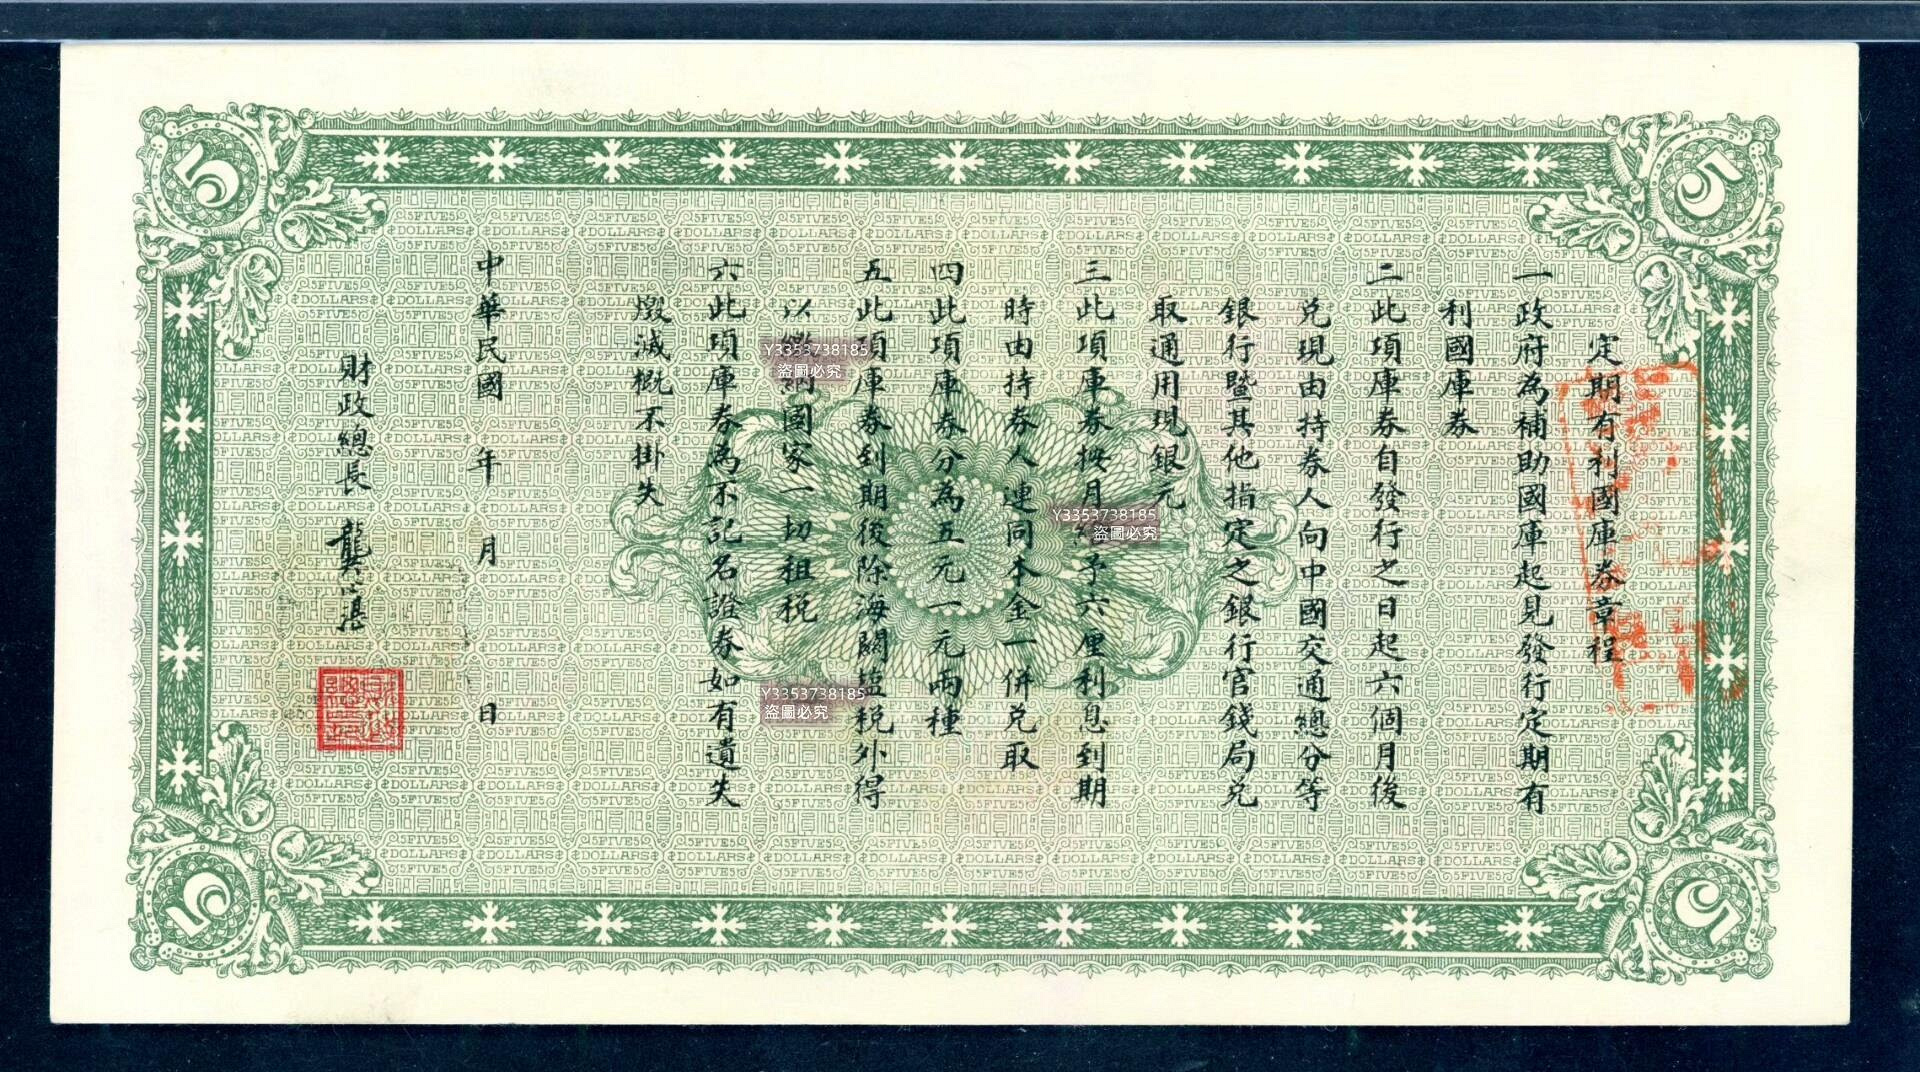 定期有利國庫券章程
一政府為補助國庫起見發行定期有
利國庫券
二此項庫券自發行之日起六個月後
兌現由持券人向中國交通總分等
銀行暨其他指定之銀行官錢局兌
取通用現銀元
三此項庫券按月 予六厘利息到期
時由持券人連同本金一併兌取
四此項庫券分為五元一元兩種
五此項庫券到期後除海關塩稅外得
以繳納國家一切租稅
六此項庫券為不記名證券如有遺失
燬滅概不掛失
中華民國 年 月 日
財政總長 龔心湛
5
5
5
5
5FIVE5
DOLLARS
Y3353738185
盜圖必究
Y3353738185
盜圖必究
Y3353738185
盜圖必究